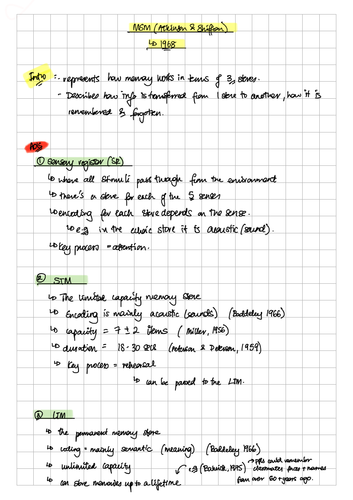 MSM (Atkinson & Shiffrin)
↳ 1968
Intro :- represents how memory works in terms of 3 stores.
- Describes how info is transferred from 1 store to another, how it is
remembered & forgotten.
AO1
① Sensory register (SR)
↳ where all stimuli pass through from the environment
↳ there's a store for each of the 5 senses
↳ encoding for each store depends on the sense.
↳ e.g in the echoic store it is acoustic (sound).
↳ Key process = attention.
② STM
↳ The limited capacity memory store
↳ Encoding is mainly acoustic (sounds) (Baddeley 1966)
↳ capacity = 7 ± 2 items (Miller, 1956)
↳ duration = 18-30 secs (Peterson & Peterson, 1959)
↳ Key process = rehearsal
↳ can be passed to the LTM.
③ LTM
↳ the permanent memory store
↳ coding = mainly semantic (meaning) (Baddeley 1966)
↳ unlimited capacity
↳ can store memories up to a lifetime
↳ e.g (Bahrick, 1975)
→ ppts could remember
classmates faces + names
from over 50+ years ago.